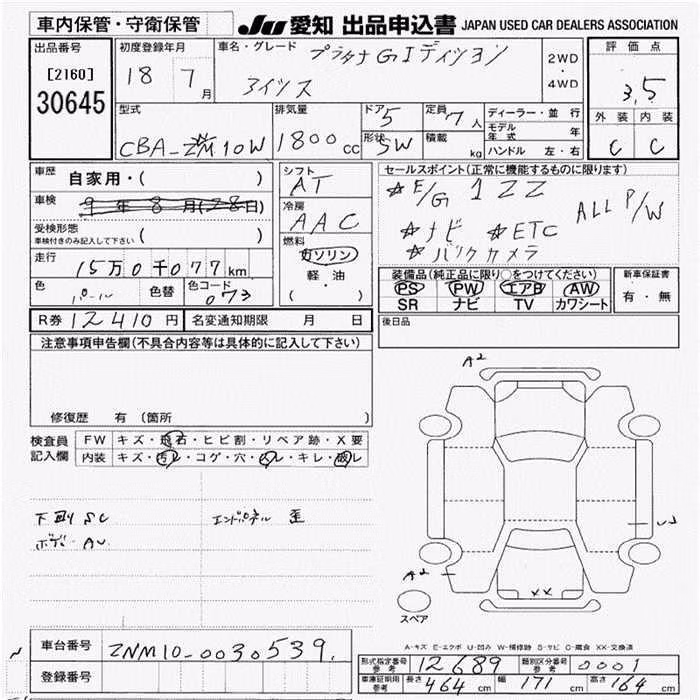 車内保管・守衛保管
JU 愛知 出品申込書 JAPAN USED CAR DEALERS ASSOCIATION
出品番号
[2160]
30645
初度登録年月
18 7月
車名・グレード
プラタナ Gエディション
アイシス
2WD
・
4WD
評価点
3.5
外装 内装
C C
型式
CBA-ZNM10W
排気量
1800cc
ドア 5
形状 SW
定員 7人
積載 kg
ディーラー・並行
モデル年式 年
ハンドル 左・右
車歴 自家用・( )
車検 9年8月(28日)
受検形態
車検付きのみ記入して下さい ( )
走行 15万0千077km
色 パール 色替 色コード 073
シフト
AT
冷房
AAC
燃料
ガソリン
軽・油
( )
セールスポイント(正常に機能するものに限ります)
☆E/G 1ZZ ALL P/W
☆ナビ ☆ETC
☆バックカメラ
装備品(純正品に限り○をつけてください)
PS PW エアB AW
SR ナビ TV カワシート
新車保証書
有・無
R券 12410円 名変通知期限 月 日
後日品
注意事項申告欄(不具合内容等は具体的に記入して下さい)
修復歴 有(箇所 )
検査員記入欄
FW キズ・飛石・ヒビ割・リペア跡・X要
内装 キズ・汚レ・コゲ・穴・スレ・キレ・破レ
下廻り SC エンドパネル 歪
ボデー AU
A2
U
A2
XX
スペア
A-キズ E-エクボ U-凹み W-補修跡 S-サビ C-腐食 XX-交換済
車台番号 ZNM10-0030539
登録番号
型式指定番号 参考 12689 類別区分番号 参考 0001
車庫証明用 参考 長さ 464cm 幅 171cm 高さ 164cm